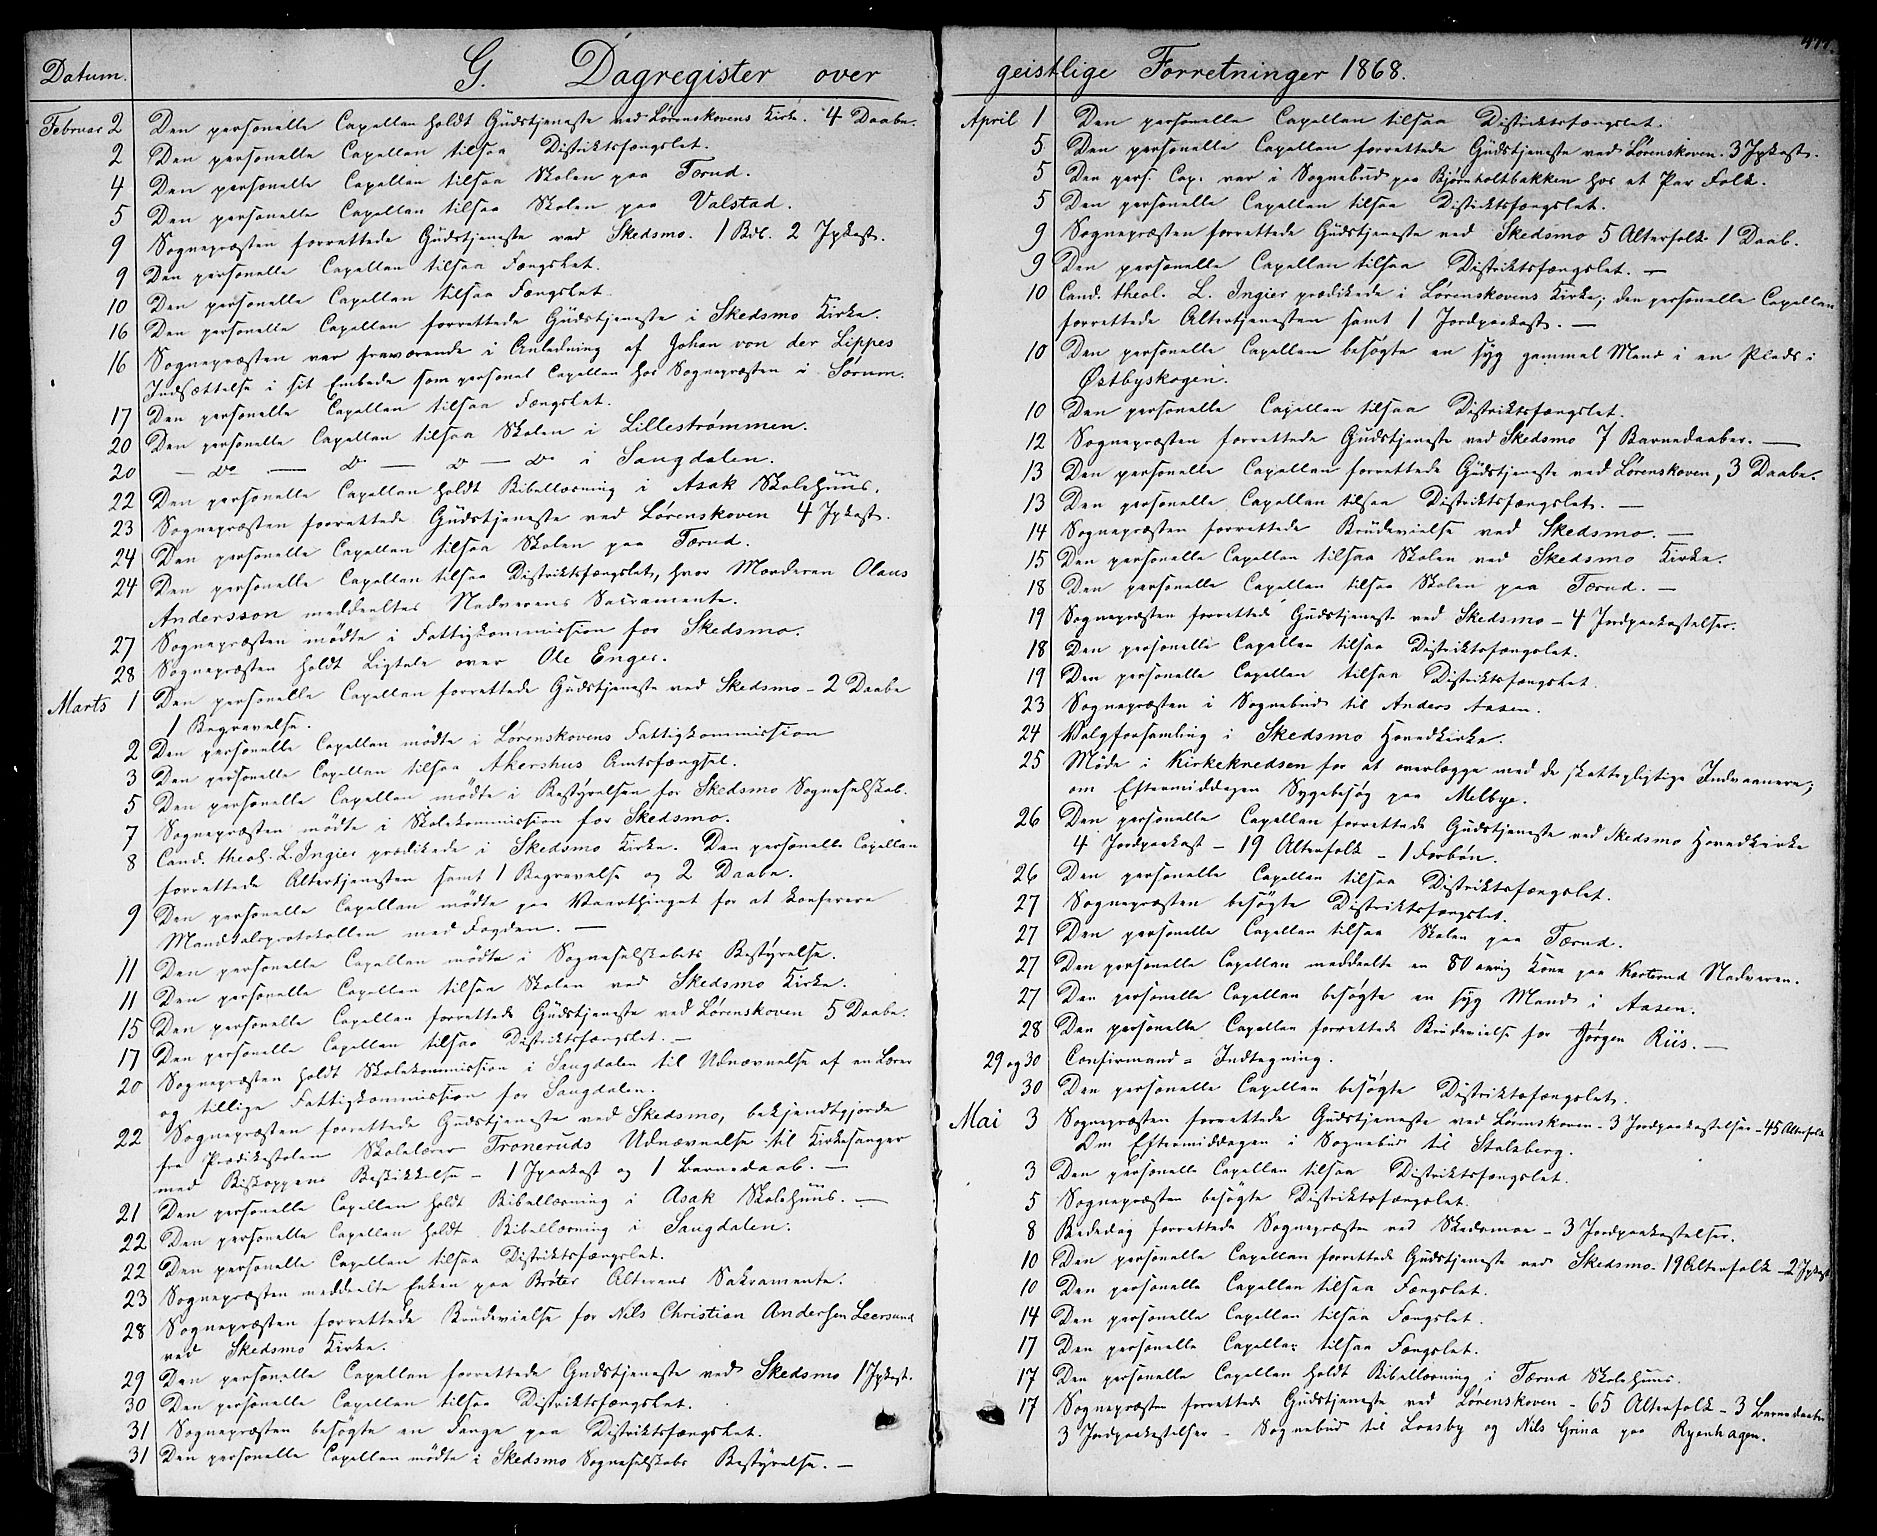 Datum. G. Dagregister over
Februar 2 Den personelle Capellan holdt Gudstjeneste ved Lørenskovens Kirke. 4 Daabe.
2 Den personelle Capellan tilsaa Distriktsfængslet.
4 Den personelle Capellan tilsaa Skolen paa Tærud.
5 Den personelle Capellan tilsaa Skolen paa Valstad.
9 Sognepræsten forrettede Gudstjeneste ved Skedsmo. 1 Bdl. 2 Jpkast.
9 Den personelle Capellan tilsaa Fængslet.
10 Den personelle Capellan tilsaa Fængslet.
16 Den personelle Capellan forrettede Gudstjeneste i Skedsmo Kirke.
16 Sognepræsten var fraværende i Anledning af Johan von der Lippes
Indsættelse i sit Embede som personel Capellan hos Sognepræsten i Sørum.
17 Den personelle Capellan tilsaa Fængslet.
20 Den personelle Capellan tilsaa Skolen i Lillestrømmen.
20 — do — do — do — do i Saugdalen.
22 Den personelle Capellan holdt Bibellæsning i Asak Skolehuus.
23 Sognepræsten forrettede Gudstjeneste ved Lørenskoven 4 Jpkast.
24 Den personelle Capellan tilsaa Skolen paa Tærud.
24 Den personelle Capellan tilsaa Distriktsfængslet, hvor Morderen Olaus
Andersson meddeeltes Nadverens Sacramente.
27 Sognepræsten mødte i Fattigkommission for Skedsmo.
28 Sognepræsten holdt Ligtale over Ole Enger.
Marts 1 Den personelle Capellan forrettede Gudstjeneste ved Skedsmo – 2 Daabe
1 Begravelse.
2 Den personelle Capellan mødte i Lørenskovens Fattigkommission
3 Den personelle Capellan tilsaa Akershus Amtsfængsel.
5 Den personelle Capellan mødte i Bestyrelsen for Skedsmo Sogneselskab.
7 Sognepræsten mødte i Skolekommission for Skedsmo.
8 Cand. theol. L. Ingier prædikede i Skedsmo Kirke. Den personelle Capellan
forrettede Altertjenesten samt 1 Begravelse og 2 Daabe.
9 Den personelle Capellan mødte paa Vaarthinget for at konferere
Mandtalsprotokollen med Fogden. —
11 Den personelle Capellan mødte i Sogneselskabets Bestyrelse.
11 Den personelle Capellan tilsaa Skolen ved Skedsmo Kirke.
15 Den personelle Capellan forrettede Gudstjeneste ved Lørenskoven 5 Daabe.
17 Den personelle Capellan tilsaa Distriktsfængslet. —
20 Sognepræsten holdt Skolekommission i Saugdalen til Udnævnelse af en Lærer
og tillige Fattigkommission for Saugdalen.
22 Sognepræsten forrettede Gudstjeneste ved Skedsmo, bekjendtgjorde
fra Prædikestolen Skolelærer Troneruds Udnævnelse til Kirkesanger
med Biskoppens Beskikkelse – 1 Jpaakast og 1 Barnedaab. —
21 Den personelle Capellan holdt Bibellæsning i Asak Skolehuus. —
22 Den personelle Capellan holdt Bibellæsning i Saugdalen.
22 Den personelle Capellan tilsaa Distriktsfængslet.
23 Sognepræsten meddeelte Enken paa Brøter Alterens Sakramente.
28 Sognepræsten forrettede Brudevielse for Nils Christian Andersen Leersund
ved Skedsmo Kirke.
29 Den personelle Capellan forrettede Gudstjeneste ved Skedsmo 1 Jpkast.
30 Den personelle Capellan tilsaa Distriktsfængslet.
31 Sognepræsten besøgte en Fange paa Distriktsfængslet.
31 Den personelle Capellan mødte i Skedsmo Sogneselskabs Bestyrelse. —
geistlige Forretninger 1868.
April 1 Den personelle Capellan tilsaa Distriktsfængslet.
5 Den personelle Capellan forrettede Gudstjeneste ved Lørenskoven. 3 Jpkast.
5 Den pers. Cap. var i Sognebud paa Bjørnholtbakken hos et Par Folk.
5 Den personelle Capellan tilsaa Distriktsfængslet.
9 Sognepræsten forrettede Gudstjeneste ved Skedsmo 5 Alterfolk 1 Daab.
9 Den personelle Capellan tilsaa Distriktsfængslet. —
10 Cand. theol. L. Ingier prædikede i Lørenskovens Kirke; den personelle Capellan
forrettede Altertjenesten samt 1 Jordpaakast. —
10 Den personelle Capellan besøgte en syg gammel Mand i en Plads i
Østbyskogen.
10 Den personelle Capellan tilsaa Distriktsfængslet.
12 Sognepræsten forrettede Gudstjeneste ved Skedsmo 7 Barnedaaber. —
13 Den personelle Capellan forrettede Gudstjeneste ved Lørenskoven, 3 Daabe.
13 Den personelle Capellan tilsaa Distriktsfængslet. —
14 Sognepræsten forrettede Brudevielse ved Skedsmo. —
15 Den personelle Capellan tilsaa Skolen ved Skedsmo Kirke.
18 Den personelle Capellan tilsaa Skolen paa Tærud. —
19 Sognepræsten forrettede Gudstjeneste ved Skedsmo – 4 Jordpaakastelser.
18 Den personelle Capellan tilsaa Distriktsfængslet.
19 Den personelle Capellan tilsaa Distriktsfængslet.
23 Sognepræsten i Sognebud til Anders Aasen.
24 Valgforsamling i Skedsmo Hovedkirke.
25 Møde i Kirkekredsen for at overlægge med de skattepligtige Indvaanere;
om Eftermiddagen Sygebesøg paa Melbye.
26 Den personelle Capellan forrettede Gudstjeneste ved Skedsmo Hovedkirke
4 Jordpaakast – 19 Alterfolk – 1 Forbøn.
26 Den personelle Capellan tilsaa Distriktsfængslet.
27 Sognepræsten besøgte Distriktsfængslet.
27 Den personelle Capellan tilsaa Skolen paa Tærud.
27 Den personelle Capellan meddeelte en 80 aarig Kone paa Korterud Nadveren.
27 Den personelle Capellan besøgte en syg Mand i Aasen.
28 Den personelle Capellan forrettede Brudevielse for Jørgen Riis. —
29 og 30 Confirmand = Indtegning.
30 Den personelle Capellan besøgte Distriktsfængslet.
Mai 3 Sognepræsten forrettede Gudstjeneste ved Lørenskoven – 3 Jordpaakastelser – 45 Alterfolk
Om Eftermiddagen i Sognebud til Stalsberg.
3 Den personelle Capellan tilsaa Distriktsfængslet.
5 Sognepræsten besøgte Distriktsfængslet.
8 Bededag forrettede Sognepræsten ved Skedsmoe – 3 Jordpaakastelser.
10 Den personelle Capellan forrettede Gudstjeneste ved Skedsmo – 19 Alterfolk – 2 Jpkast
10 Den personelle Capellan tilsaa Fængslet.
14 Den personelle Capellan tilsaa Fængslet.
17 Den personelle Capellan tilsaa Fængslet.
17 Den personelle Capellan holdt Bibellæsning i Tærud Skolehuus.
17 Sognepræsten forrettede Gudstjeneste ved Lørenskoven – 65 Alterfolk – 3 Barnedaaber
3 Jordpaakastelser – Sognebud til Losby og Nils Grina paa Ryenhagen.